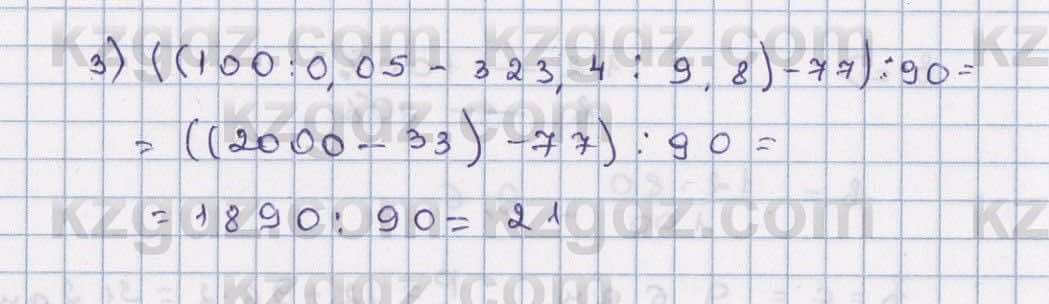 kzgdz.com kzgdz.com kz
3) ((100:0,05 - 323,4 : 9,8) - 77) : 90 =
kzgdz.com
= ((2000 - 33) - 77) : 90 =
= 1890 : 90 = 21
kzgdz.com kzgdz.com kz
kzgdz.com